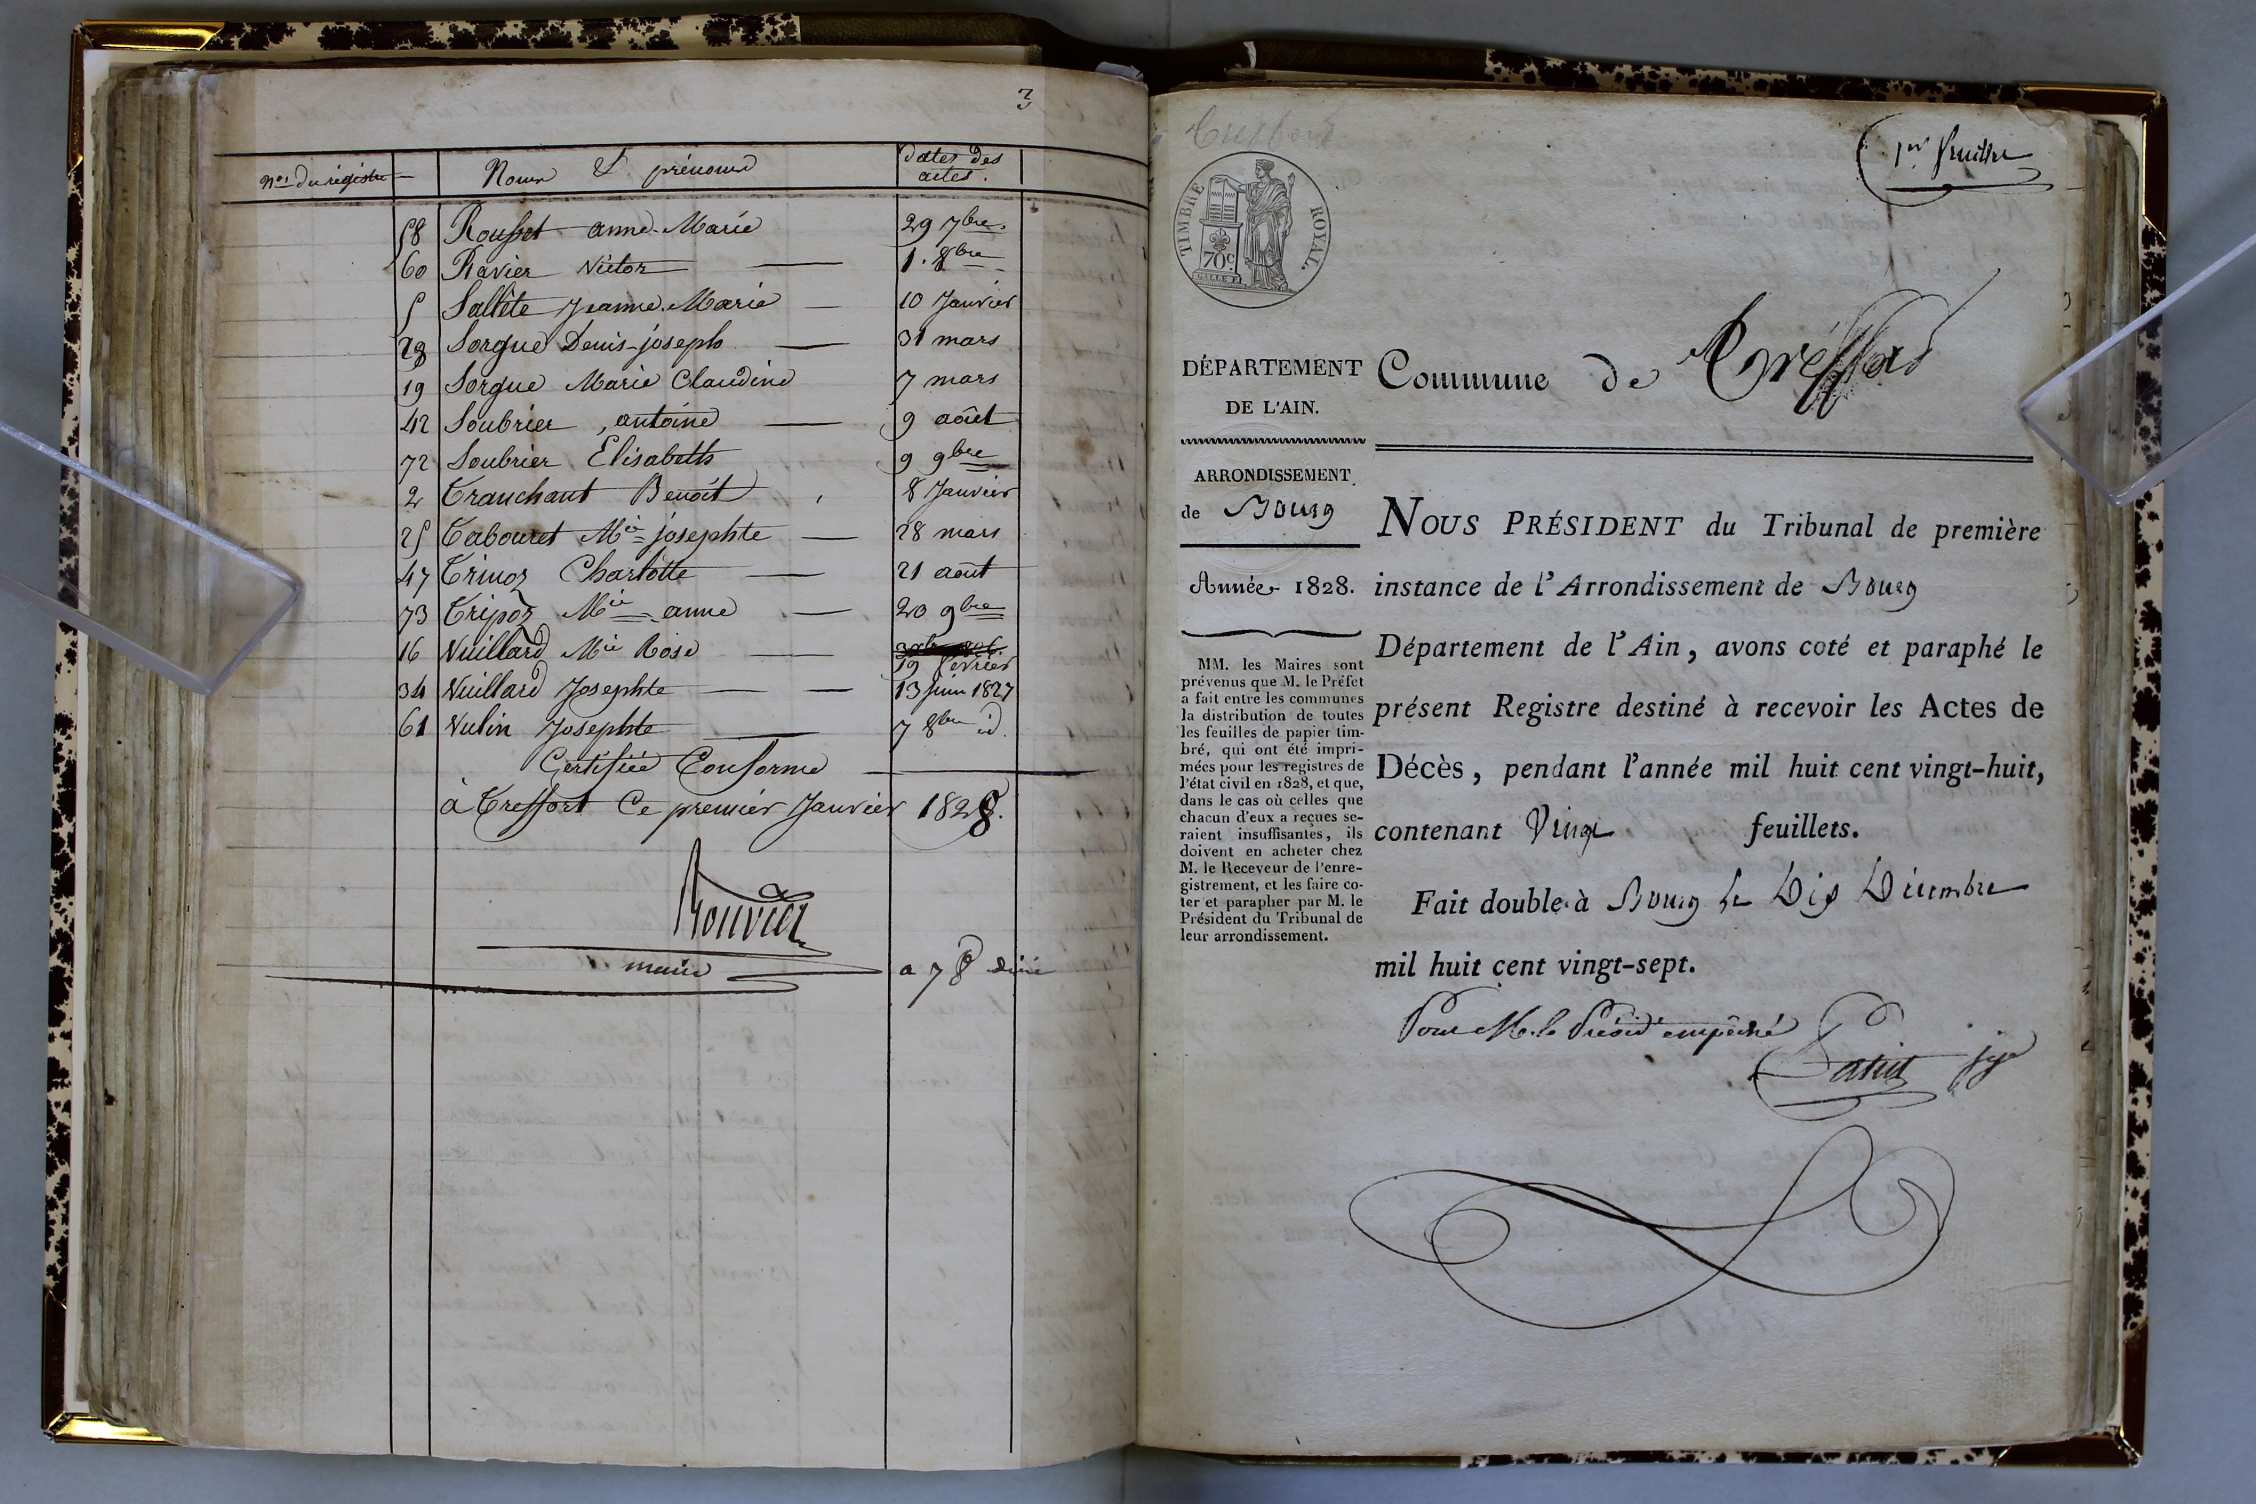 3
Nos. du régistre
Noms & prénoms
Dates des
actes.
58 Rousset anne-Marie 29 7bre.
60 Ravier Victor 1. 8bre
5 Salléte Jeanne-Marie 10 Janvier
28 Sorgue Denis-joseph 31 mars
19 Sorgue Marie Claudine 7 mars
42 Soubrier, antoine 9 aôut
72 Soubrier Elisabeth 9 9bre
2 Tranchant Benoit 8 Janvier
25 Tabouret Mie josephte 28 mars
47 Trinoz Charlotte 21 aout
73 Tripoz Mie anne 20 9bre
16 Vuillard Mie Rose 19 février
34 Vuillard Josephte 13 juin 1827
61 Vulin Josephte 7 8bre id.
Certifiée Conforme
à Treffort Ce premier Janvier 1828.
Rouvier
maire
1er feuillet
TIMBRE ROYAL.
70c
DÉPARTEMENT
DE L'AIN.
ARRONDISSEMENT
de Bourg
Année 1828.
MM. les Maires sont
prévenus que M. le Préfet
a fait entre les communes
la distribution de toutes
les feuilles de papier tim-
bré, qui ont été impri-
mées pour les registres de
l'état civil en 1828, et que,
dans le cas où celles que
chacun d'eux a reçues se-
raient insuffisantes, ils
doivent en acheter chez
M. le Receveur de l'enre-
gistrement, et les faire co-
ter et parapher par M. le
Président du Tribunal de
leur arrondissement.
Commune de Tréffort
NOUS PRÉSIDENT du Tribunal de première
instance de l'Arrondissement de Bourg
Département de l'Ain, avons coté et paraphé le
présent Registre destiné à recevoir les Actes de
Décès, pendant l'année mil huit cent vingt-huit,
contenant Vingt feuillets.
Fait double à Bourg le Dix Décembre
mil huit cent vingt-sept.
Pour M. le Présidt empêché